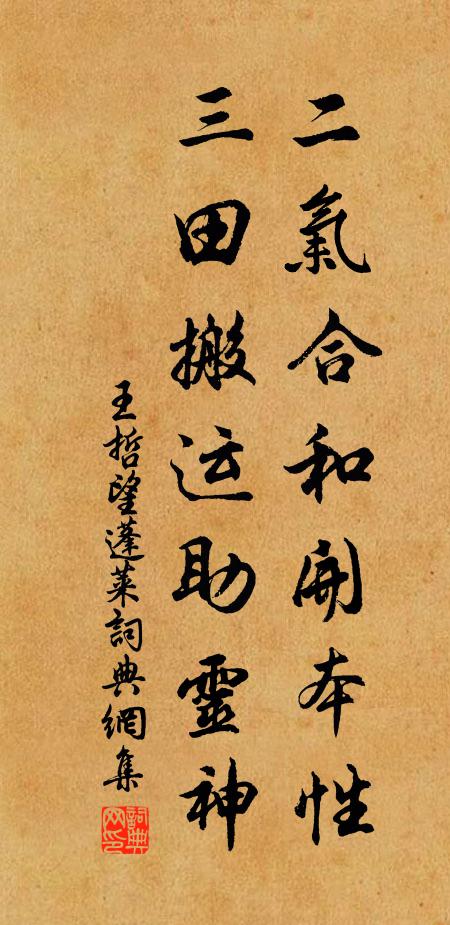 二氣合和開本性
三田搬运助靈神
王哲望蓬萊詞典網集
詞典网印